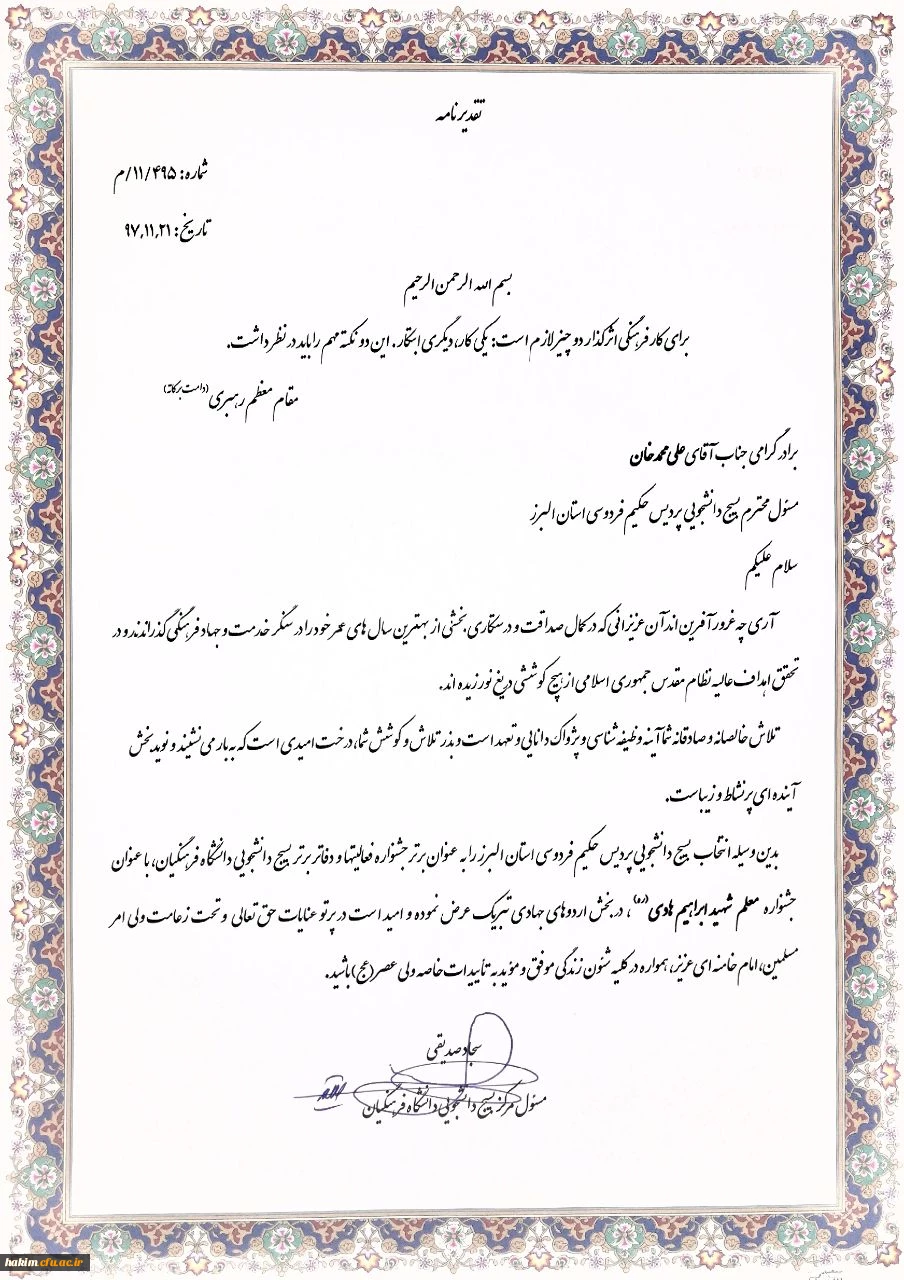 تقدیرنامه
شماره: ۱۱/۴۹۵/م
تاریخ: ۹۷,۱۱,۲۱
بسم الله الرحمن الرحیم
برای کار فرهنگی اثرگذار دو چیز لازم است: یکی کار، دیگری ابتکار. این دو نکته مهم را باید در نظر داشت.
مقام معظم رهبری (دامت برکاته)
برادر گرامی جناب آقای علی محمدخان
مسئول محترم بسیج دانشجویی پردیس حکیم فردوسی استان البرز
سلام علیکم
آری چه غرور آفرین اند آن عزیزانی که در کمال صداقت و درستکاری بخشی از بهترین سال های عمر خود را در سنگر خدمت و جهاد فرهنگی گذراندند و در
تحقق اهداف عالیه نظام مقدس جمهوری اسلامی از هیچ کوششی دریغ نورزیده اند.
تلاش خالصانه و صادقانه شما آینه وظیفه شناسی و پژواک دانایی و تعهد است و بذر تلاش و کوشش شما، درخت امیدی است که به بار می نشیند و نوید بخش
آینده ای پرنشاط و زیباست.
بدین وسیله انتخاب بسیج دانشجویی پردیس حکیم فردوسی استان البرز را به عنوان برتر جشنواره فعالیتها و دفاتر برتر بسیج دانشجویی دانشگاه فرهنگیان، با عنوان
جشنواره معلم شهید ابراهیم هادی (ره)، در بخش اردوهای جهادی تبریک عرض نموده و امید است در پرتو عنایات حق تعالی و تحت زعامت ولی امر
مسلمین، امام خامنه ای عزیز، همواره در کلیه شئون زندگی موفق و مؤید به تأییدات خاصه ولی عصر (عج) باشید.
سجاد صدیقی
مسئول مرکز بسیج دانشجویی دانشگاه فرهنگیان
hakim.cfu.ac.ir